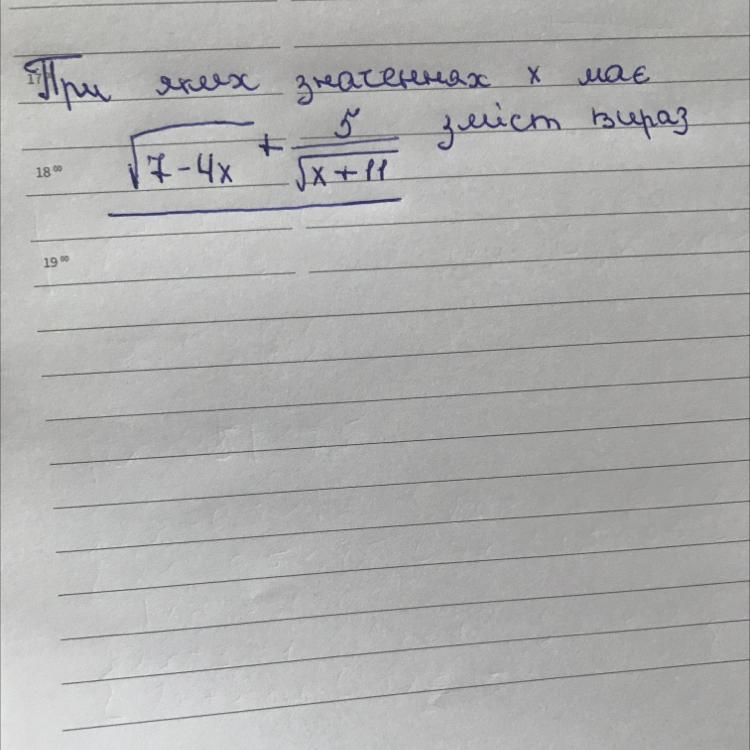 17
При яких значеннях x має
√7-4x + 5/√x+11 зміст вираз
18⁰⁰
19⁰⁰